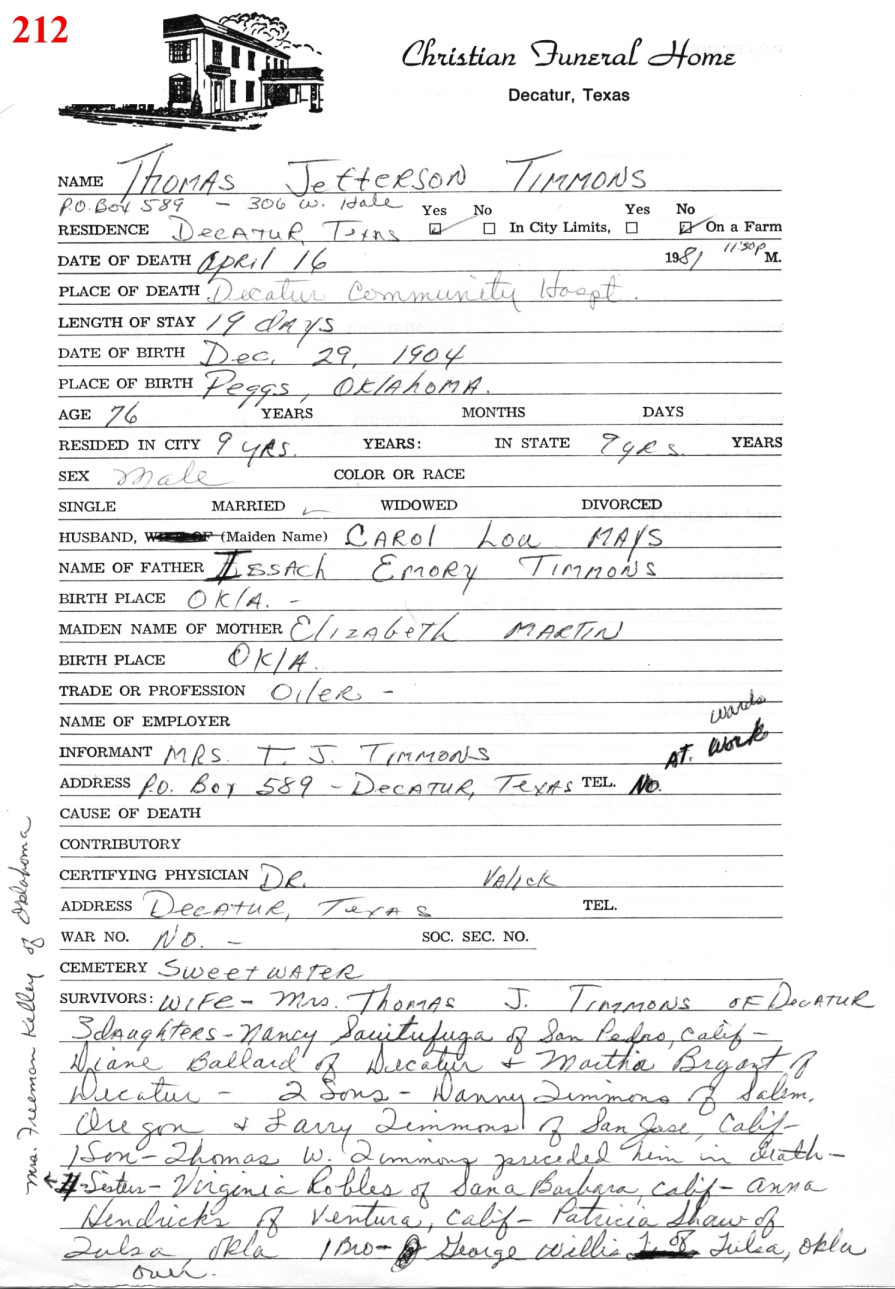 212
Christian Funeral Home
Decatur, Texas
NAME Thomas Jefferson Timmons
P.O. Box 589 - 306 W. Hale
Yes No Yes No
RESIDENCE Decatur, Texas In City Limits, On a Farm
DATE OF DEATH April 16 1981 11:30 P M.
PLACE OF DEATH Decatur Community Hospt.
LENGTH OF STAY 19 days
DATE OF BIRTH Dec. 29, 1904
PLACE OF BIRTH Peggs, Oklahoma.
AGE 76 YEARS MONTHS DAYS
RESIDED IN CITY 9 yrs. YEARS: IN STATE 9 yrs. YEARS
SEX Male COLOR OR RACE
SINGLE MARRIED WIDOWED DIVORCED
HUSBAND, WIFE OF (Maiden Name) Carol Lou Mays
NAME OF FATHER Issach Emory Timmons
BIRTH PLACE Okla. -
MAIDEN NAME OF MOTHER Elizabeth Martin
BIRTH PLACE Okla.
TRADE OR PROFESSION Oiler -
NAME OF EMPLOYER
wards
INFORMANT Mrs. T. J. Timmons At. Work
ADDRESS P.O. Box 589 - Decatur, Texas TEL. No.
CAUSE OF DEATH
CONTRIBUTORY
CERTIFYING PHYSICIAN Dr. Valick
ADDRESS Decatur, Texas TEL.
WAR NO. No. - SOC. SEC. NO.
CEMETERY Sweetwater
SURVIVORS: Wife - Mrs. Thomas J. Timmons of Decatur
3 daughters - Nancy of San Pedro, Calif -
Diane Ballard of Decatur & Martha Bryant of
Decatur - 2 Sons - Danny Timmons of Salem,
Oregon & Larry Timmons of San Jose, Calif -
1 Son - Thomas W. Timmons preceded him in death -
4 Sisters - Virginia Robles of Sana Barbara, Calif - Anna
Hendricks of Ventura, Calif - Patricia Shaw of
Tulsa, Okla 1 Bro - George Willis of Tulsa, Okla
over.
Mrs. Freeman Kelley of Oklahoma